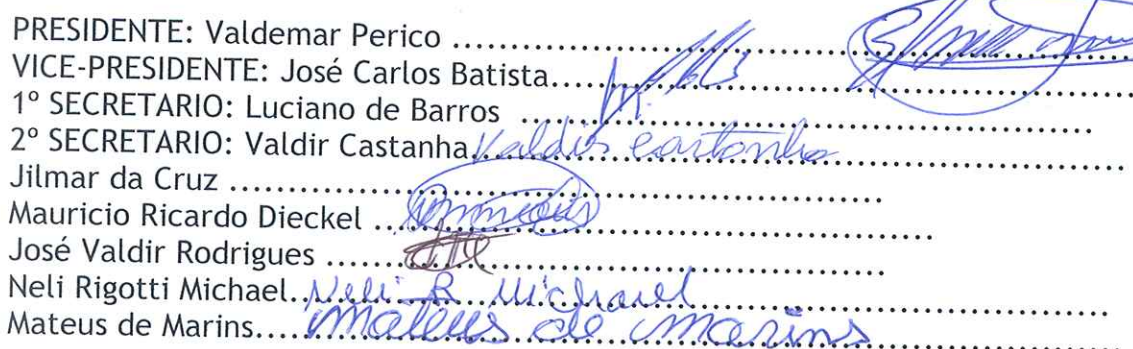 PRESIDENTE: Valdemar Perico ..............................................................
VICE-PRESIDENTE: José Carlos Batista..........................................................
1º SECRETARIO: Luciano de Barros ........................................................
2º SECRETARIO: Valdir Castanha Valdir Castanha ..............................
Jilmar da Cruz ..................................................................
Mauricio Ricardo Dieckel .......................................................
José Valdir Rodrigues ......................................................
Neli Rigotti Michael.. Neli R Michael ..............................
Mateus de Marins.... Mateus de Marins ..............................